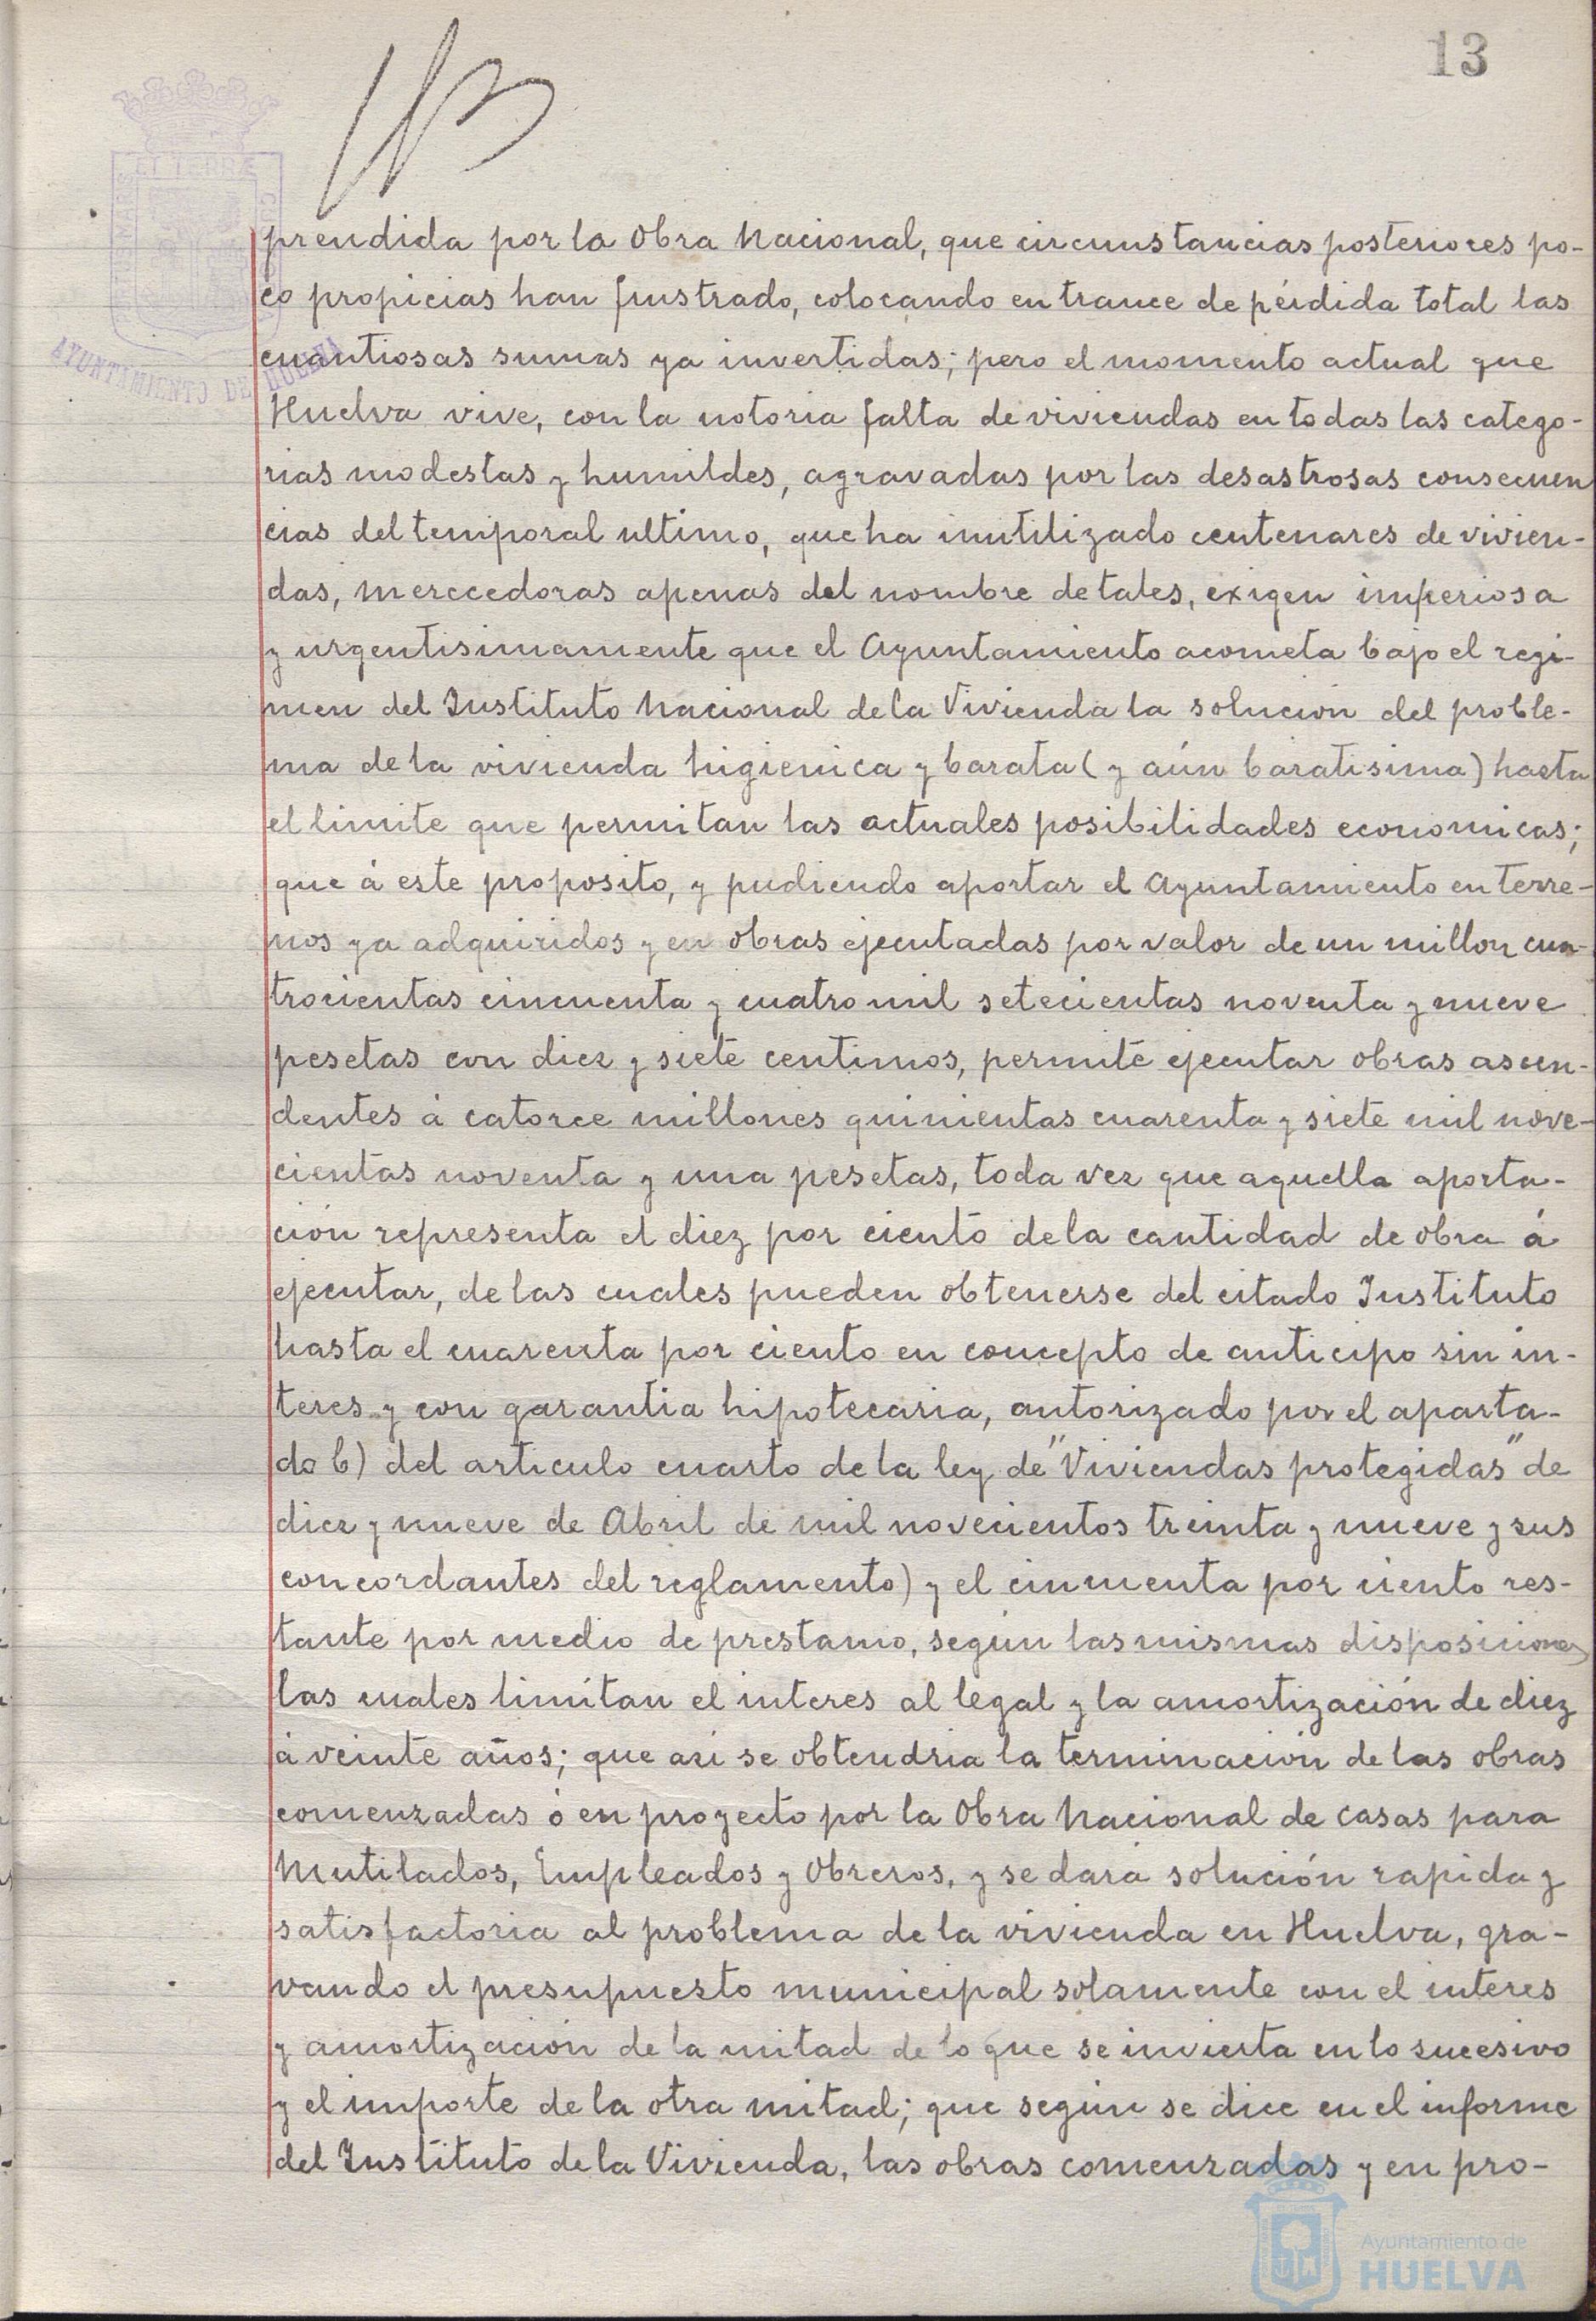 13
prendida por la Obra Nacional, que circunstancias posteriores po-
co propicias han frustrado, colocando en trance de pérdida total las
cuantiosas sumas ya invertidas; pero el momento actual que
Huelva vive, con la notoria falta de viviendas en todas las catego-
rias modestas y humildes, agravadas por las desastrosas consecuen
cias del temporal ultimo, que ha inutilizado centenares de vivien-
das, merecedoras apenas del nombre de tales, exigen imperiosa
y urgentisimamente que el Ayuntamiento acometa bajo el regi-
men del Instituto Nacional de la Vivienda la solución del proble-
ma de la vivienda higienica y barata (y aún baratisima) hasta
el limite que permitan las actuales posibilidades economicas;
que á este proposito, y pudiendo aportar el Ayuntamiento en terre-
nos ya adquiridos y en obras ejecutadas por valor de un millon cua-
trocientas cincuenta y cuatro mil setecientas noventa y nueve
pesetas con diez y siete centimos, permite ejecutar obras ascen-
dentes á catorce millones quinientas cuarenta y siete mil nove-
cientas noventa y una pesetas, toda vez que aquella aporta-
ción representa el diez por ciento de la cantidad de obra á
ejecutar, de las cuales pueden obtenerse del citado Instituto
hasta el cuarenta por ciento en concepto de anticipo sin in-
teres y con garantia hipotecaria, autorizado por el aparta-
do b) del articulo cuarto de la ley de "Viviendas protegidas" de
diez y nueve de Abril de mil novecientos treinta y nueve y sus
concordantes del reglamento) y el cincuenta por ciento res-
tante por medio de prestamo, según las mismas disposiciones
las cuales limitan el interes al legal y la amortización de diez
á veinte años; que asi se obtendria la terminación de las obras
comenzadas ó en proyecto por la Obra Nacional de casas para
Mutilados, Empleados y Obreros, y se dará solución rapida y
satisfactoria al problema de la vivienda en Huelva, gra-
vando el presupuesto municipal solamente con el interes
y amortización de la mitad de lo que se invierta en lo sucesivo
y el importe de la otra mitad; que según se dice en el informe
del Instituto de la Vivienda, las obras comenzadas y en pro-
AYUNTAMIENTO DE HUELVA
Ayuntamiento de
HUELVA